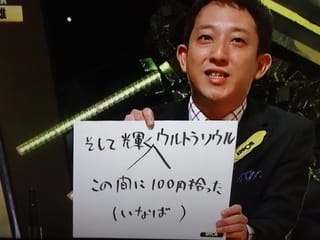 雄
そして輝くウルトラソウル
この間に100円拾った
(いなば)